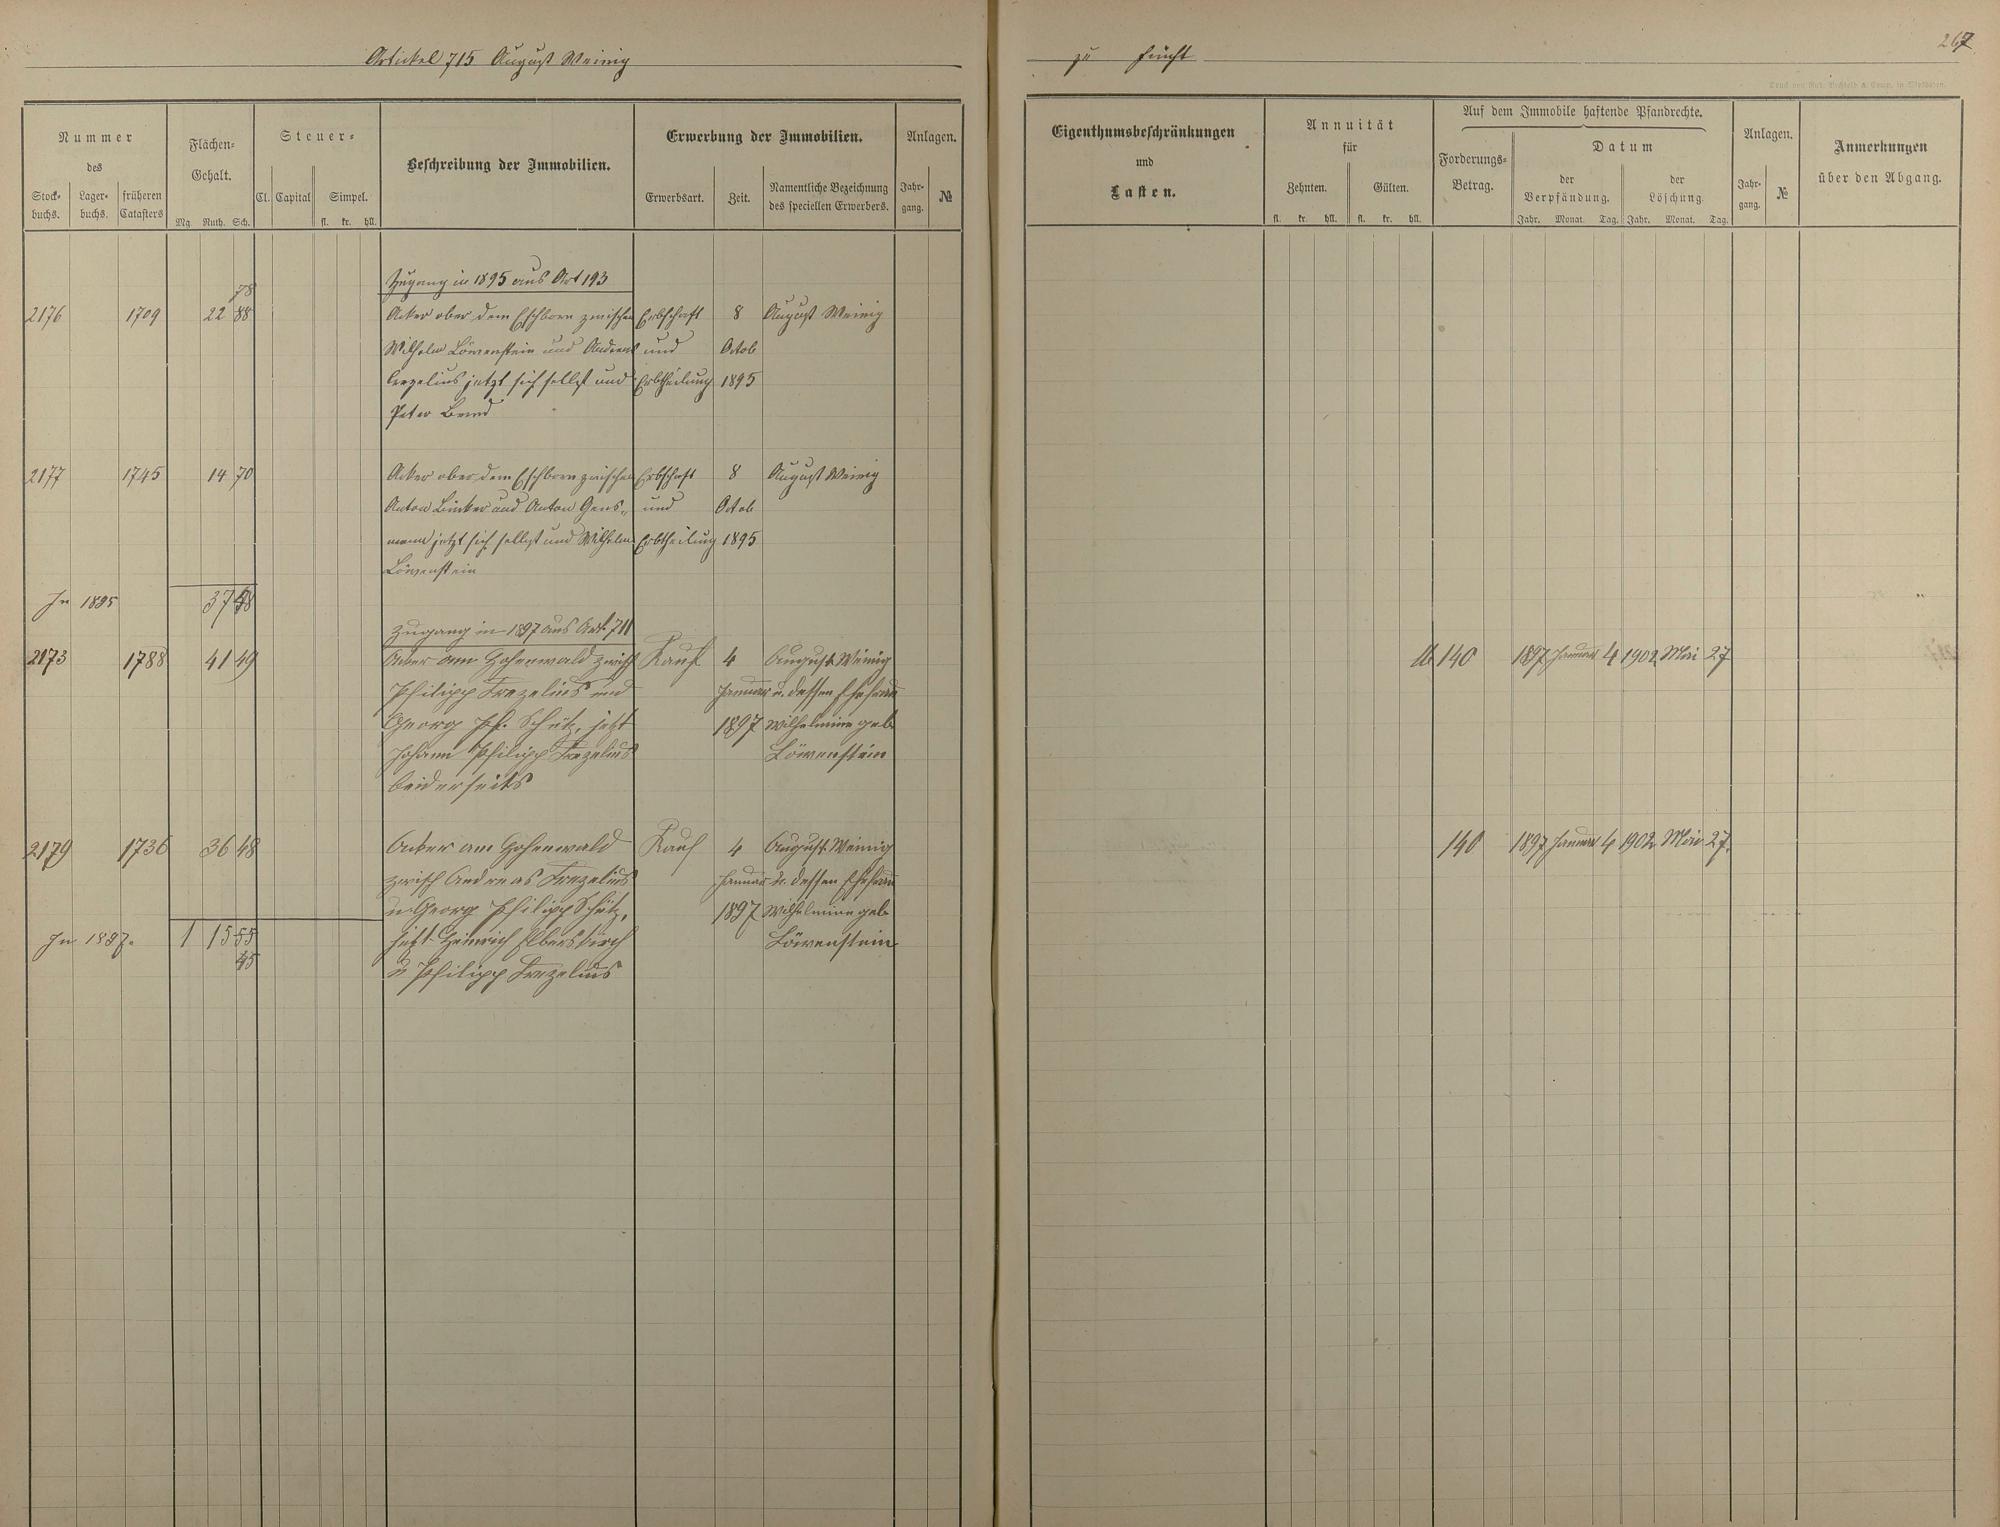 Artickel 715 August Weinig
Nummer
des
Stock-
buchs.
Lager-
buchs.
früheren
Catasters
Flächen-
Gehalt.
Mg. Ruth. Sch.
Steuer-
Cl. Capital Simpel.
fl. kr. hll.
Beschreibung der Immobilien.
Erwerbung der Immobilien.
Erwerbsart. Zeit.
Namentliche Bezeichnung
des speciellen Erwerbers.
Anlagen.
Jahr-
gang.
№
Zugang in 1895 aus Art 193
78
2176 1709 22 88 Acker ober dem Eschborn zwischen Erbschaft 8 August Weinig
Wilhelm Löwenstein und Andreas und Octob
Crezelius jetzt sich selbst und Erbtheilung 1895
Peter
2177 1745 14 70 Acker ober dem Eschborn zwischen Erbschaft 8 August Weinig
Anton Linker und Anton Gens- und Octob
mann jetzt sich selbst und Wilhelm Erbtheilung 1895
Löwenstein
In 1895 37
Zugang in 1897 aus Art. 711
2173 1788 41 49 Acker am Hohenwald zwisch Kauf 4 August Weinig
Philipp Crezelius und Januar u. dessen Ehefrau
Georg Ph. Schütz, jetzt 1897 Wilhelmine geb
Johann Philipp Crezelius Löwenstein
beiderseits
2179 1736 36 48 Acker am Hohenwald Kauf 4 August Weinig
zwisch Andreas Crezelius Januar u. dessen Ehefrau
u. Georg Philipp Schütz, 1897 Wilhelmine geb
In 1897. 1 15 55 jetzt Heinrich Ebertskirch Löwenstein
45
u Philipp Crezelius
zu Frücht
267
Eigenthumsbeschränkungen
und
Lasten.
Annuität
für
Zehnten. Gülten.
fl. kr. hll. fl. kr. hll.
Auf dem Immobile haftende Pfandrechte.
Forderungs-
Betrag.
Datum
der
Verpfändung.
Jahr. Monat. Tag.
der
Löschung
Jahr. Monat. Tag.
Anlagen.
Jahr-
gang.
№
Anmerkungen
über den Abgang.
140 1897 Januar 4 1902 Mai 27
140 1897 Januar 4 1902 Mai 27.